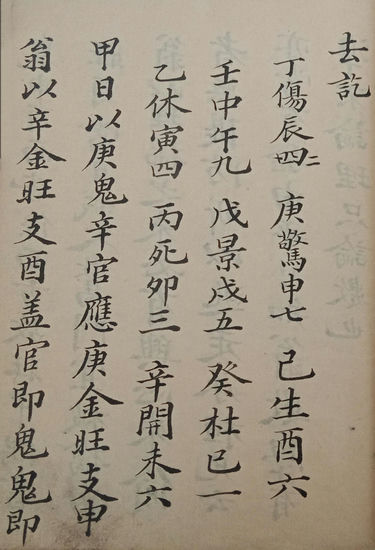 去訖
丁傷辰四二 庚驚申七 己生酉六
壬中午九 戊景戌五 癸杜巳一
乙休寅四 丙死卯三 辛開未六
甲日以庚鬼辛官應庚金旺支申
翁以辛金旺支酉盖官即鬼鬼即